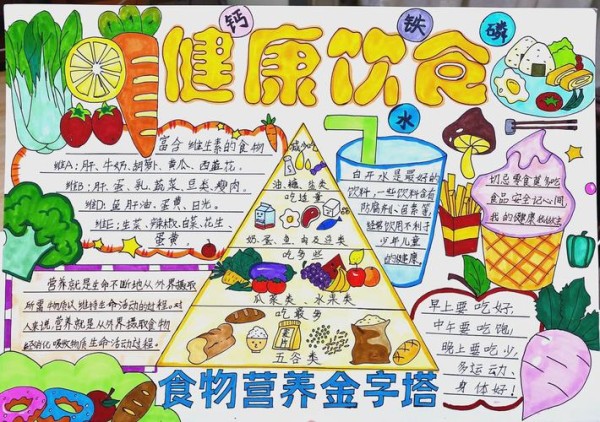 健康饮食
钙
铁
磷
水
富含维生素的食物
维A：肝、牛奶、胡萝卜、黄瓜、西蓝花。
维B：肝、蛋、乳、蔬菜、豆类、瘦肉。
维D：鱼肝油、蛋黄、日光。
维E：生菜、辣椒、白菜、花生、
蛋黄。
营养就是生命不断地从外界摄取
所需物质以维持生命活动的过程。对
人来说，营养就是从外界摄取食物
经消化吸收物质生命活动过程。
减少吃
油、糖、盐类
吃适量
奶、蛋、鱼、肉及豆类
吃多些
瓜菜类、水果类
吃最多
五谷类
食物营养金字塔
白开水是最好的
饮料，一些饮料含有
防腐剂、色素等，
经常饮用不利于
少年儿童
的健康。
切忌零食莫多吃
食品安全记心间
我的健康我做主
早上要吃好，
中午要吃饱，
晚上要吃少，
多运动、
身体好！